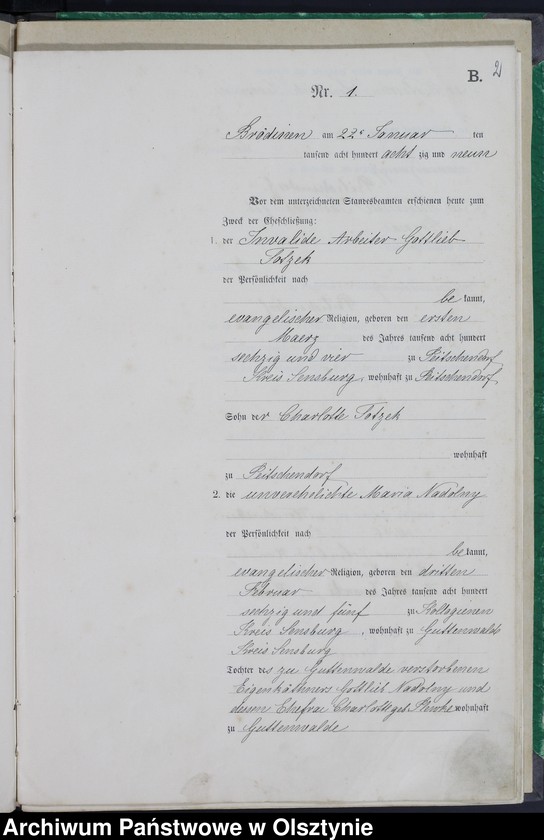 B. 2
Nr. 1.
Brödienen am 22ten Januar ten
tausend acht hundert achtzig und neun
Vor dem unterzeichneten Standesbeamten erschienen heute zum
Zweck der Eheschließung:
1. der Invalide Arbeiter Gottlieb
Totzek
der Persönlichkeit nach
be kannt,
evangelischer Religion, geboren den ersten
Maerz des Jahres tausend acht hundert
sechzig und vier zu Peitschendorf
Kreis Sensburg, wohnhaft zu Peitschendorf
Sohn der Charlotte Totzek
wohnhaft
zu Peitschendorf
2. die unverehelichte Maria Nadolny
der Persönlichkeit nach
be kannt,
evangelischer Religion, geboren den dritten
Februar des Jahres tausend acht hundert
sechzig und fünf zu
Kreis Sensburg, wohnhaft zu Guttenwalde
Kreis Sensburg
Tochter des zu Guttenwalde verstorbenen
Eigenkäthners Gottlieb Nadolny und
dessen Ehefrau Charlotte geb. wohnhaft
zu Guttenwalde
Archiwum Państwowe w Olsztynie